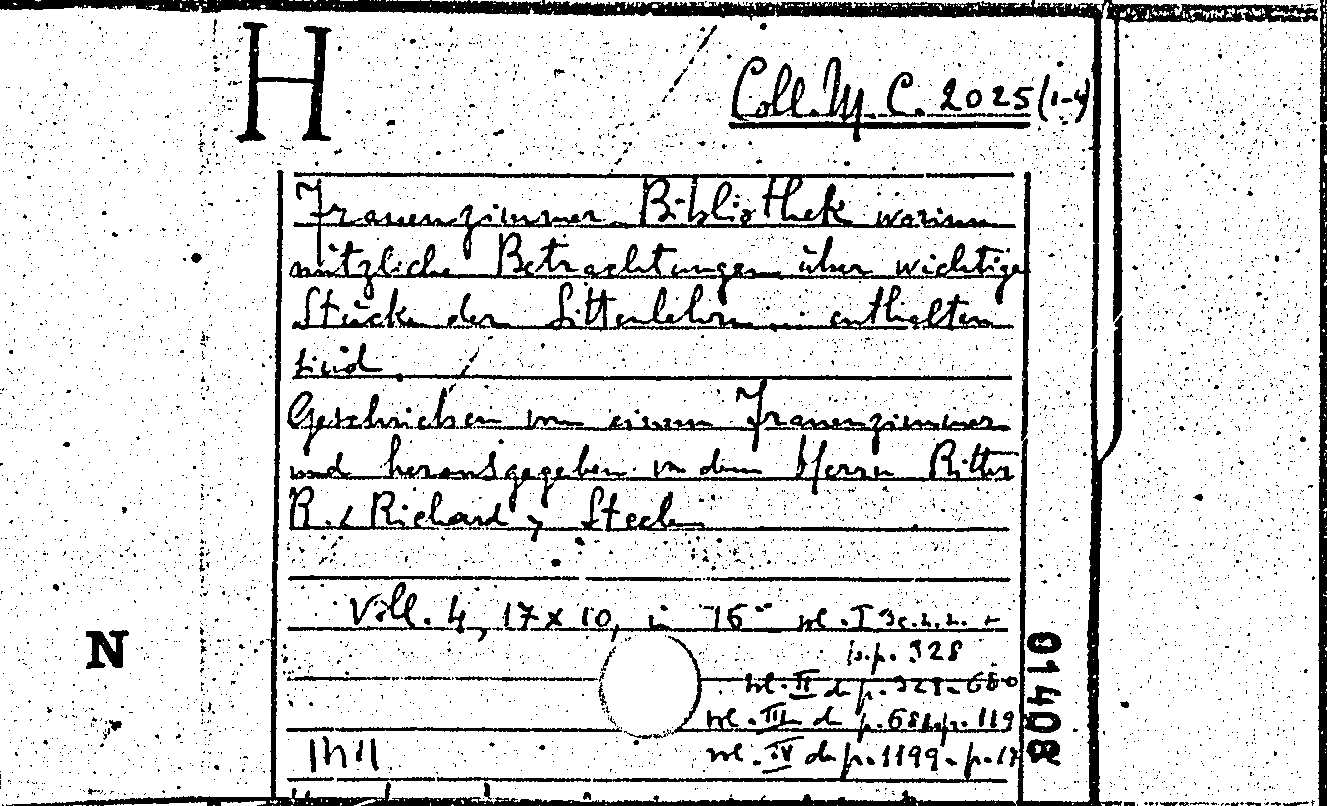 H
Coll. M. C. 2025 (1-4)
Frauenzimmer Bibliothek worinn
nützliche Betrachtungen über wichtige
Stücke der Sittenlehre enthalten
sind.
Geschrieben von einem Frauenzimmer
und herausgegeben von dem Herrn Ritter
R. < Richard > Steele
Voll. 4, 17 x 10, in 16° vol. I 3c.n.n. +
p.p. 328
N
vol. II da p. 329-680
vol. III da p. 681-p. 119
vol. IV da p. 1199 - p. 17
01408